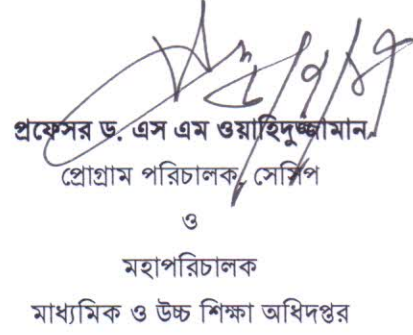 প্রফেসর ড. এস এম ওয়াহিদুজ্জামান
প্রোগ্রাম পরিচালক, সেসিপ
ও
মহাপরিচালক
মাধ্যমিক ও উচ্চ শিক্ষা অধিদপ্তর